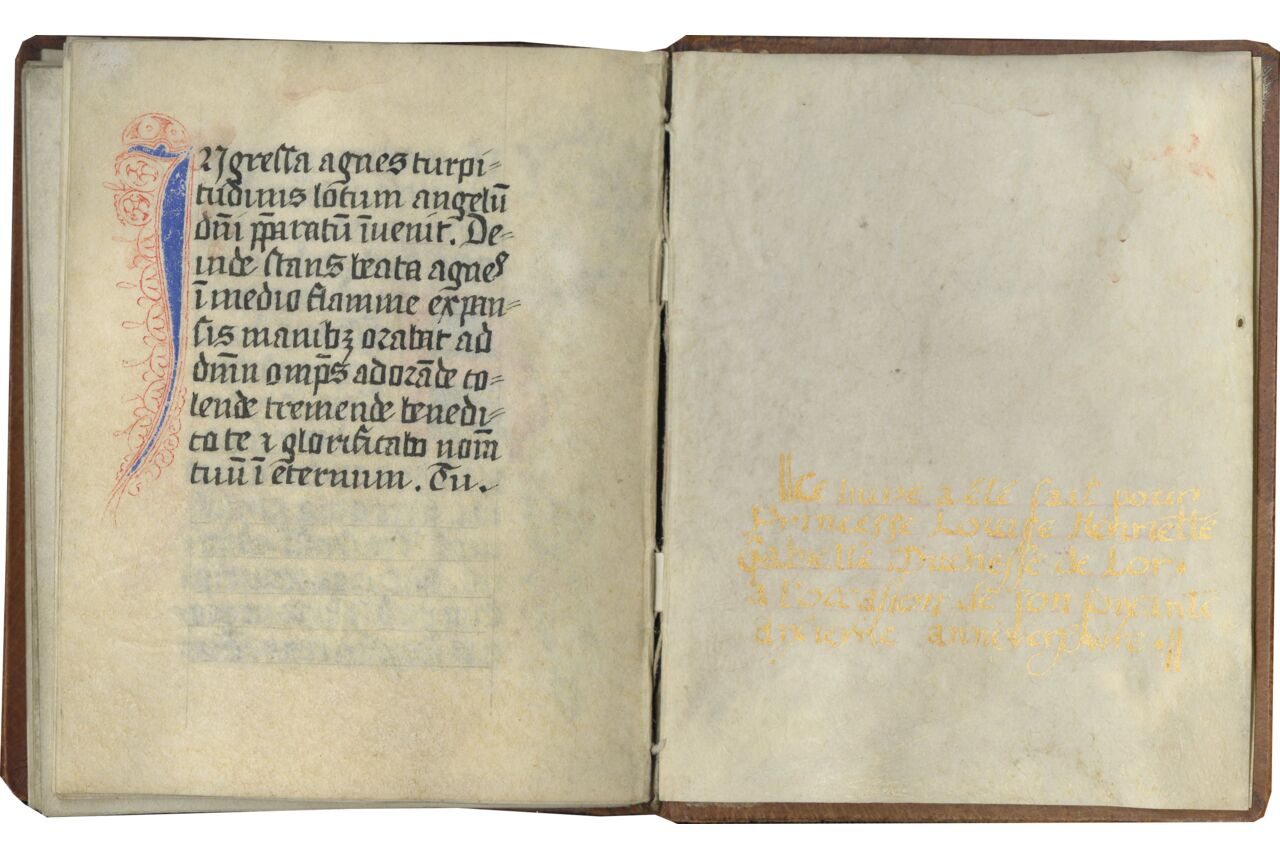 INgressa agnes turpi=
tudinis locum angelū
dn̄i pp̄aratū īuenit. De=
inde stans beata agnes
ī medio flamme expan=
sis manibꝫ orabat ad
dn̄m omp̄s adorāde co=
lende tremende benedi=
co te ⁊ glorificabo nom̄
tuū ī eternum. Tu.
||Ce livre a été fait pour
Princesse Louise Henriette
Gabrielle Duchesse de Lor.
à l'occasion de son soixante
dixieme anniversaire.||